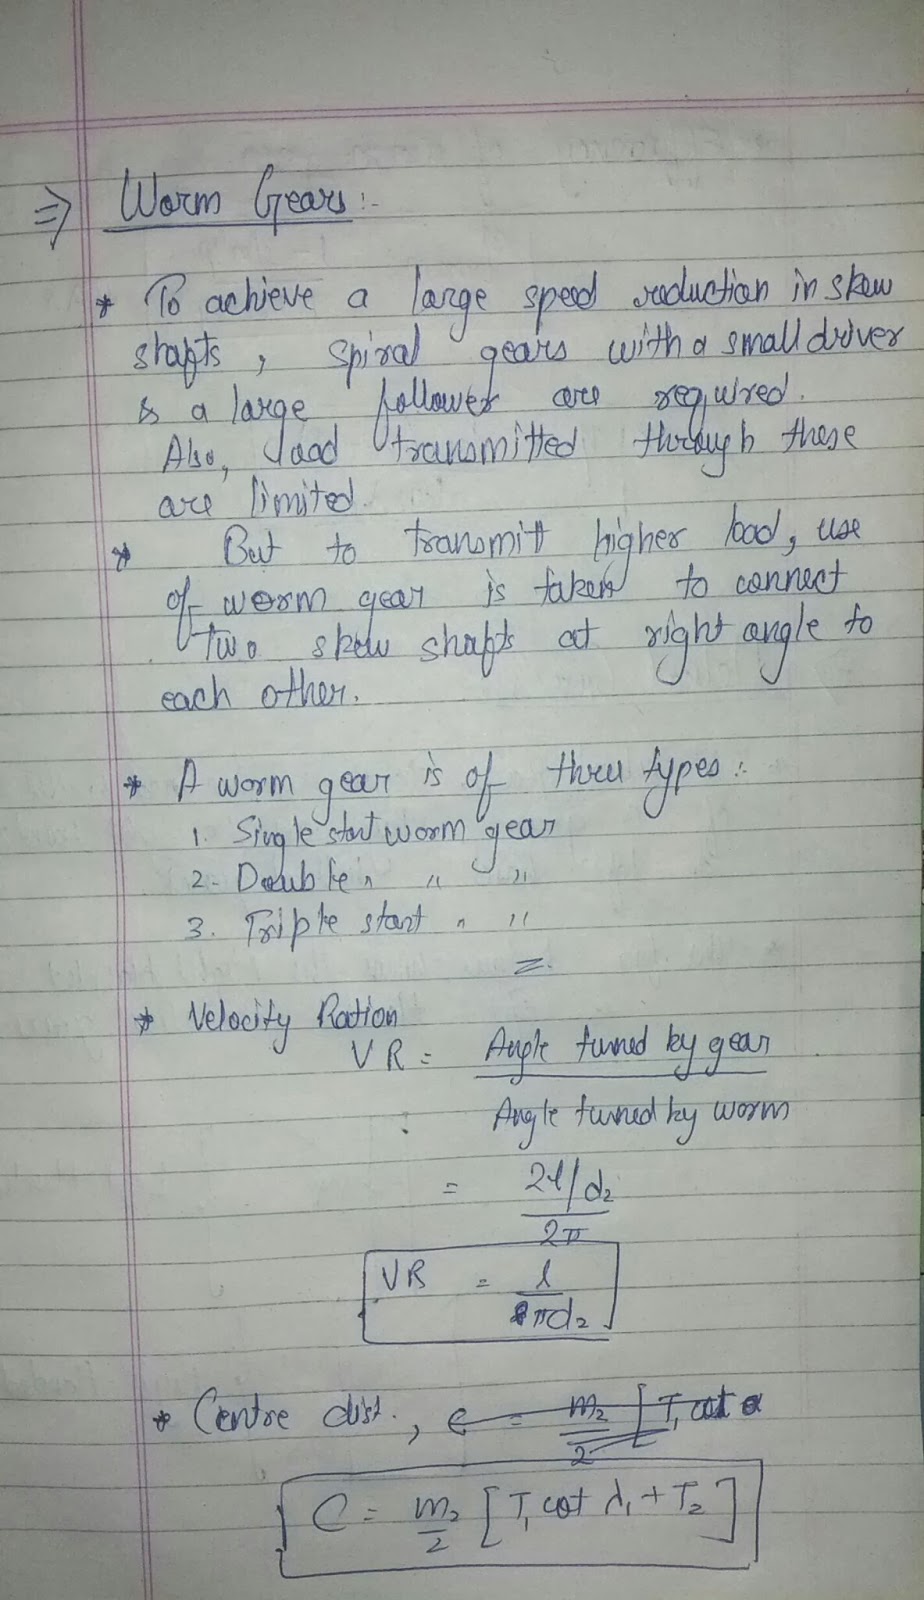 ⇒ Worm Gears :-
* To achieve a large speed reduction in skew
shafts, spiral gears with a small driver
& a large follower are required.
Also, load transmitted through these
are limited.
* But to transmitt higher load, use
of worm gear is taken to connect
two skew shafts at right angle to
each other.
* A worm gear is of three types :-
1. Single start worm gear
2. Double " " "
3. Triple start " "
* Velocity Ration
VR = Angle turned by gear
Angle turned by worm
= 2l/d₂
2π
VR = l
πd₂
* Centre dist., c = m₂/2 [T₁ cot
C = m₂/2 [T₁ cot λ₁ + T₂]